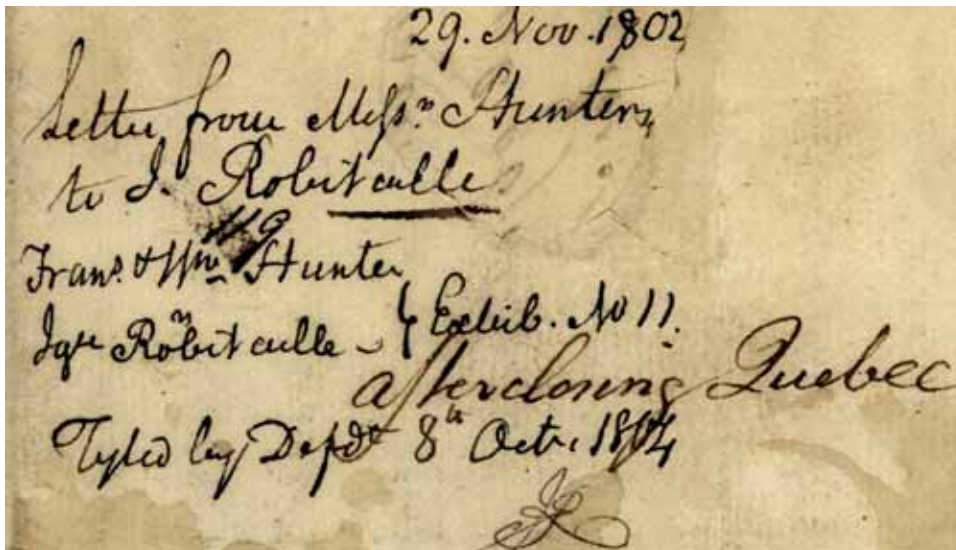 29. Nov. 1802
Letter from Messrs. Hunters
to I. Robitaille
119
Frans. & Wm Hunter
vs
Igne Robitaille } Exhib. No 11.
after closing Quebec
Fyled by Defdt 8th Octr. 1804